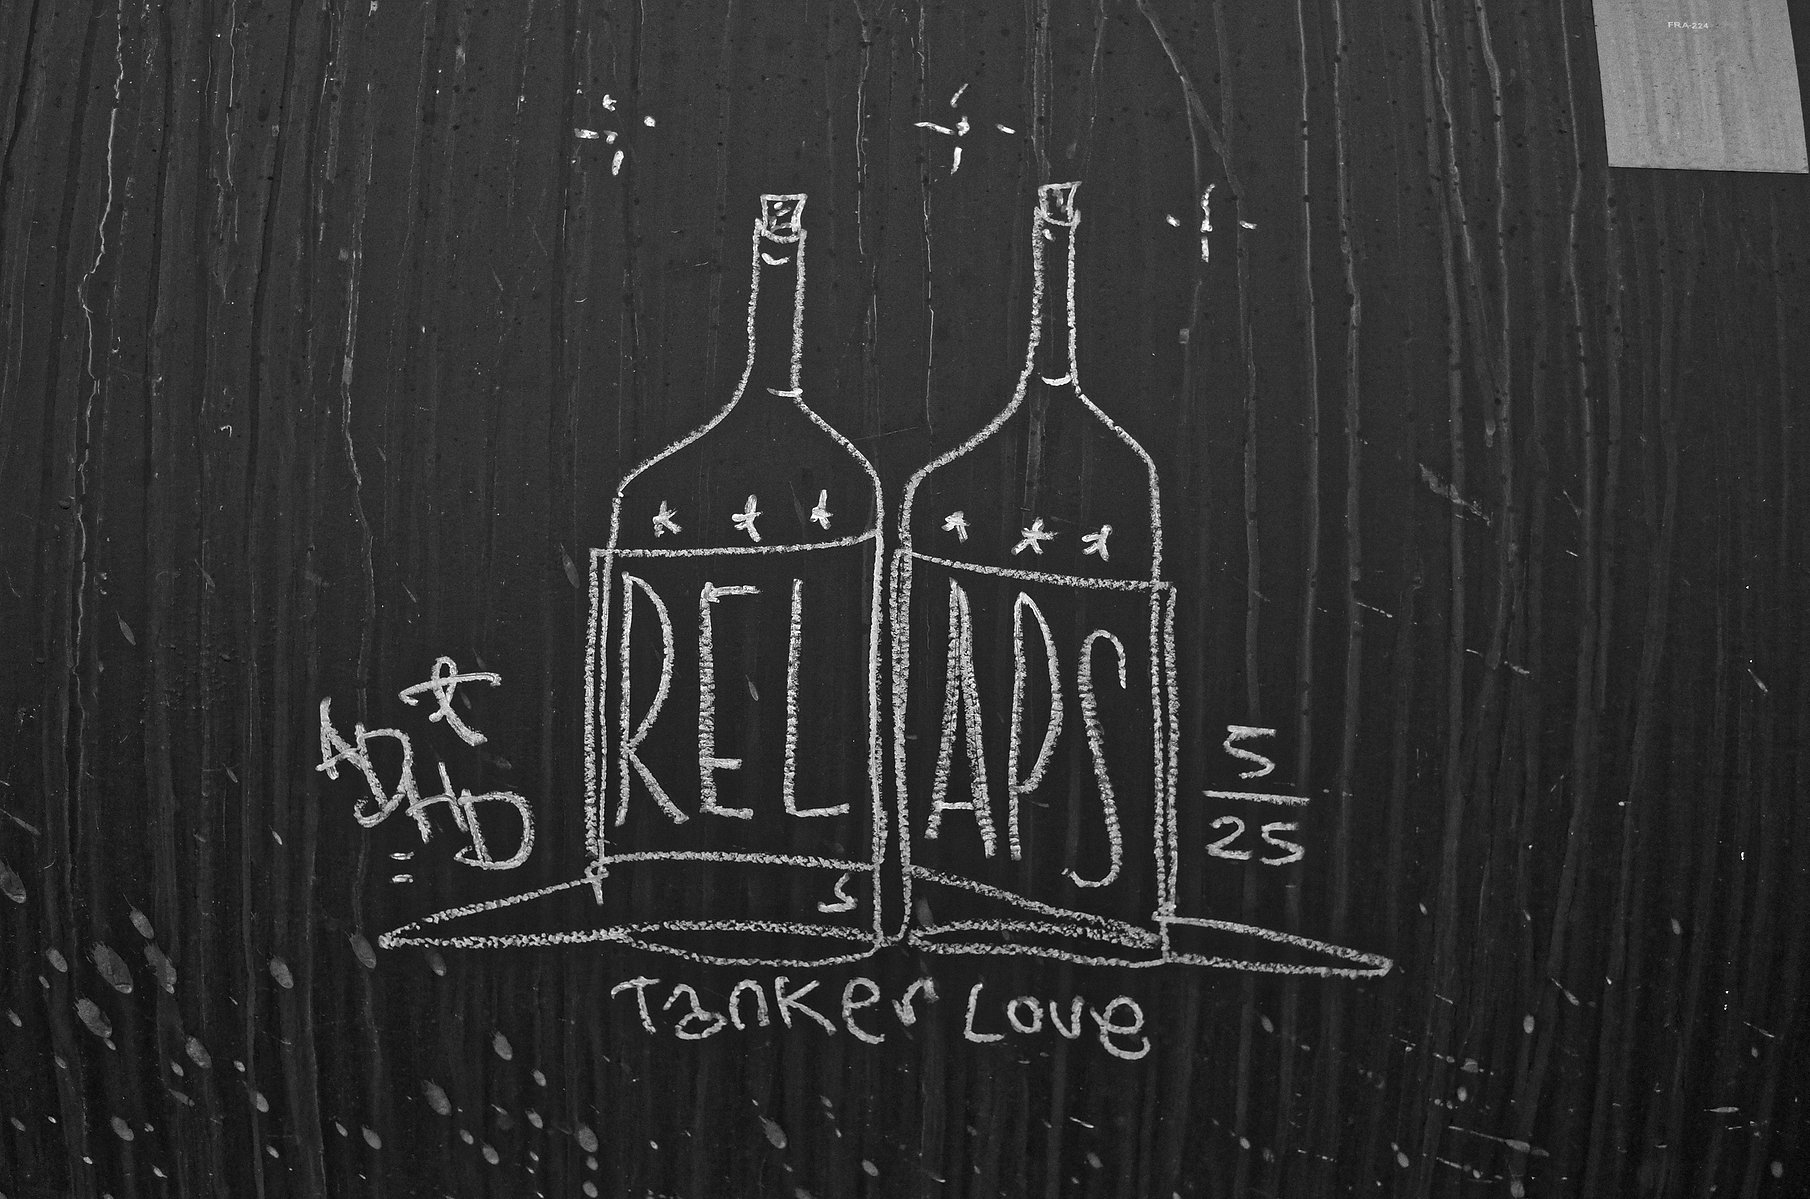 FRA-224
REL APS
ADHD
5
25
s
Tanker Love